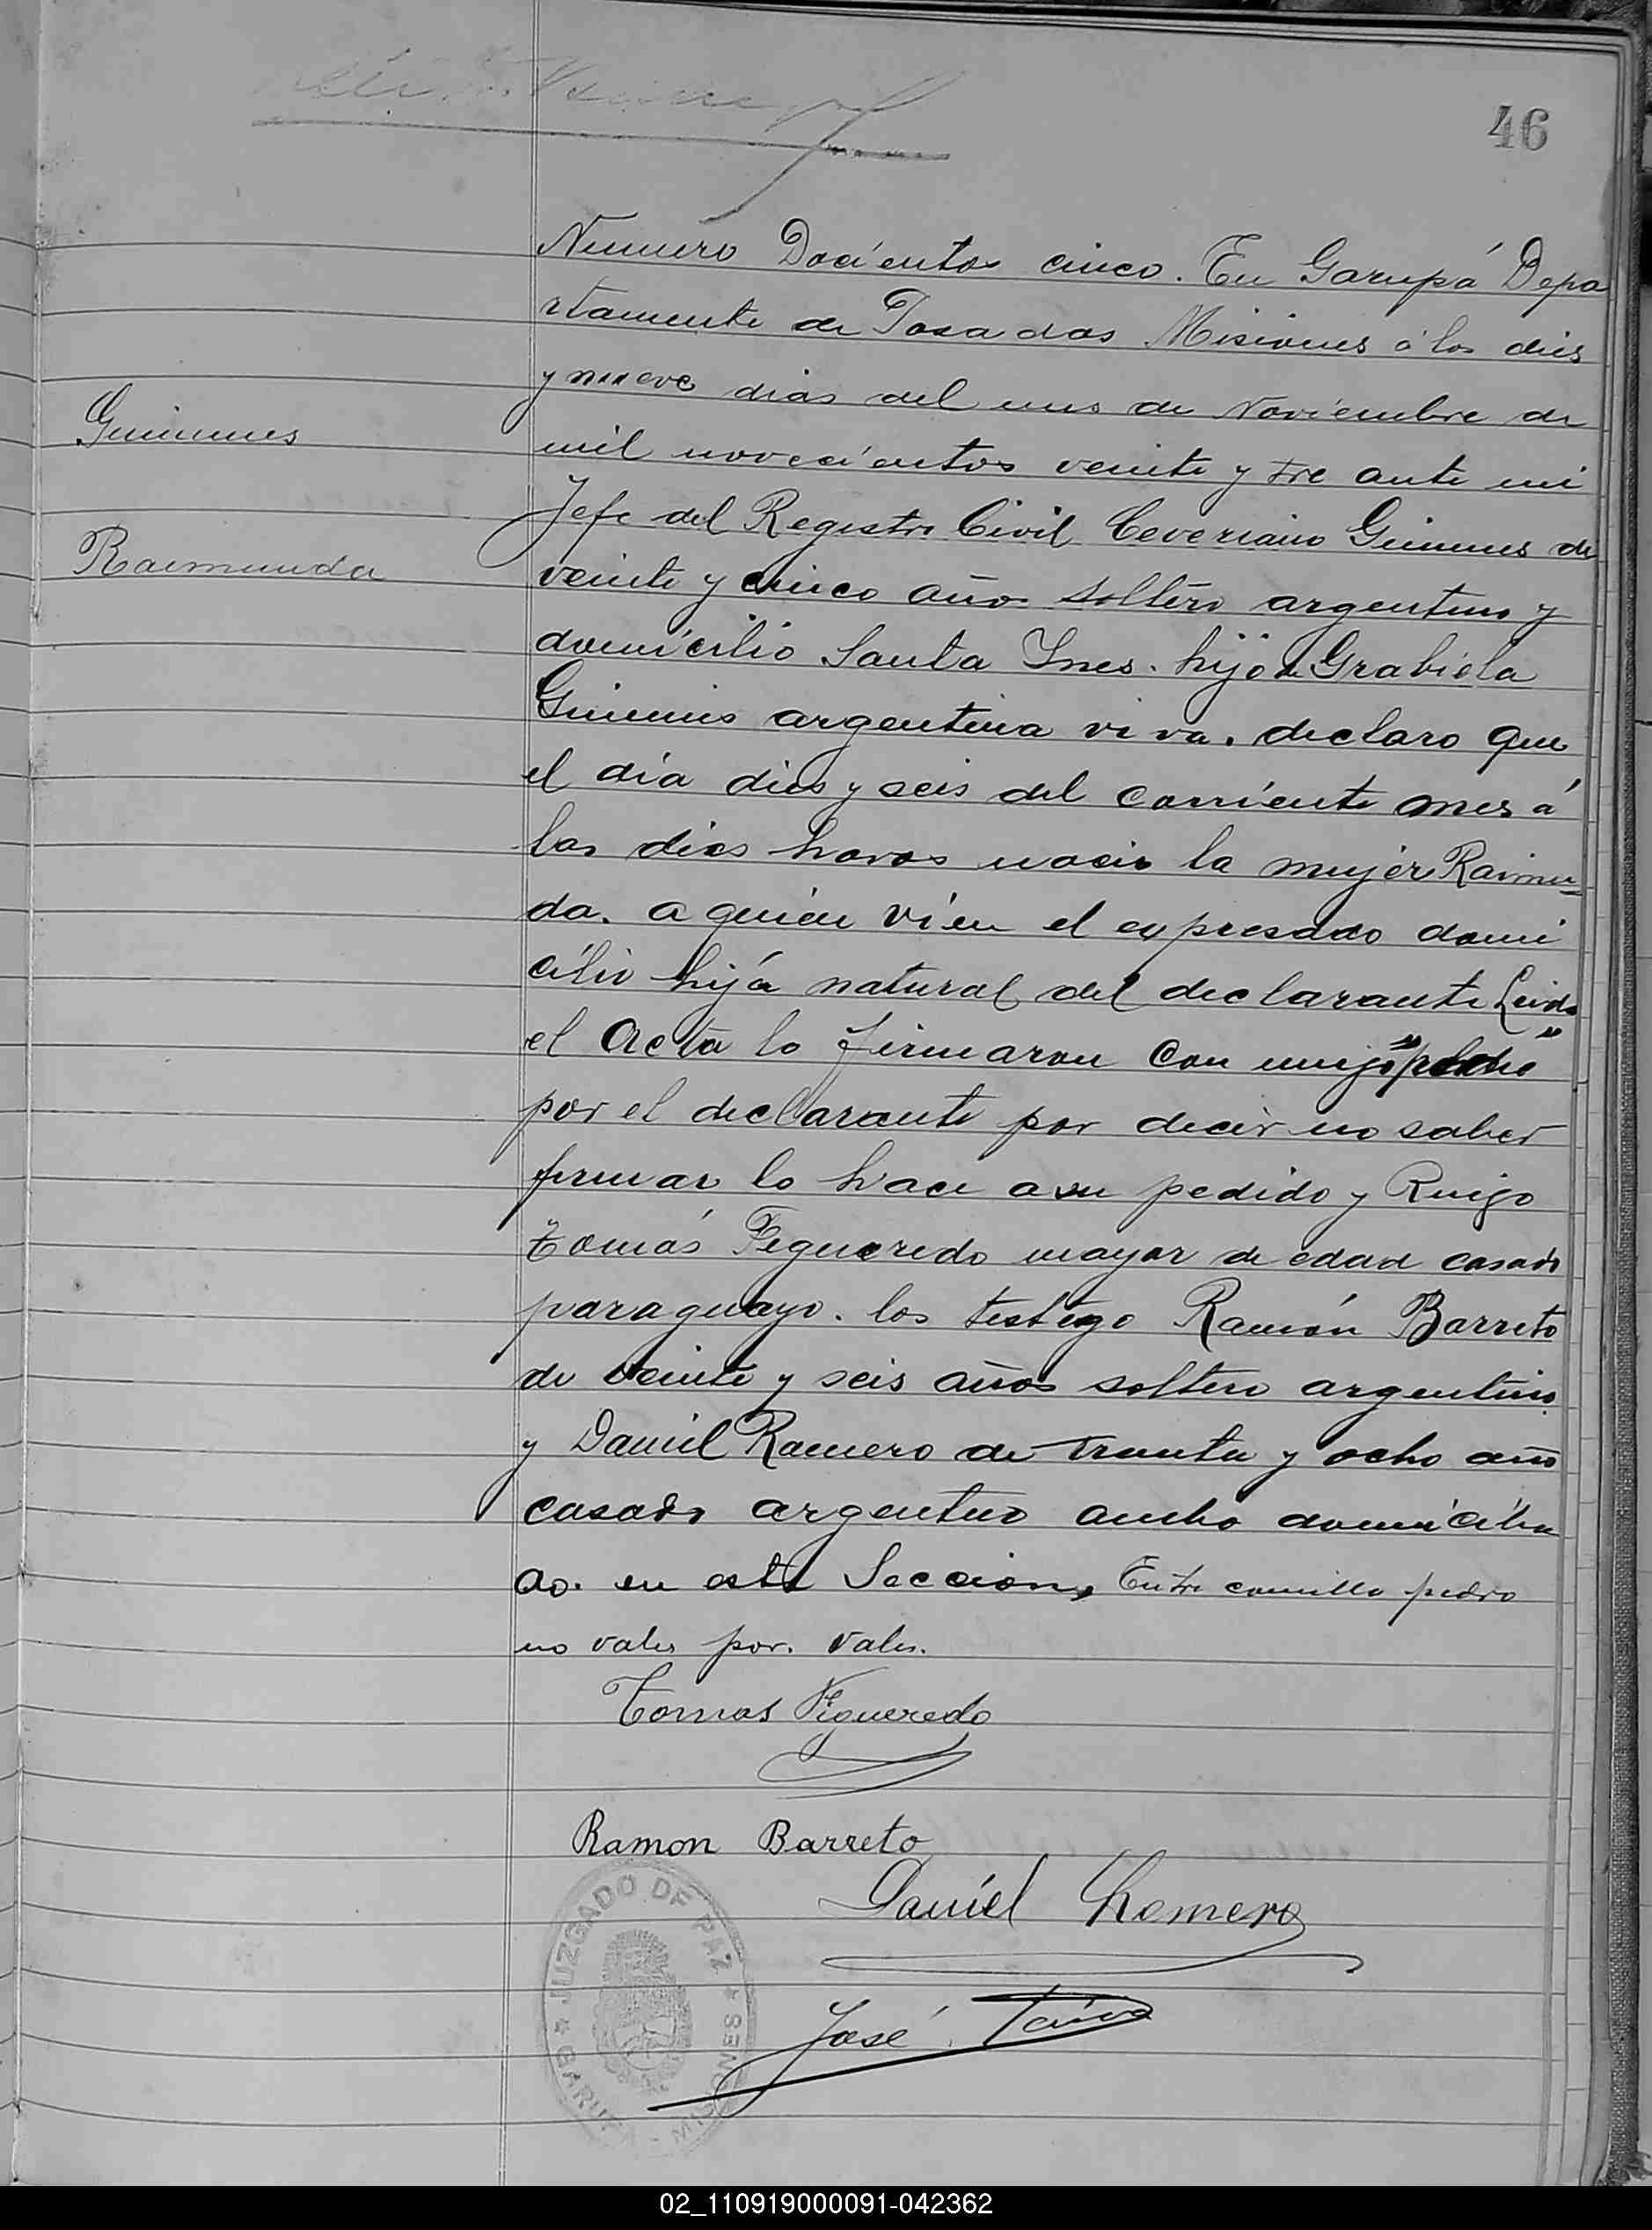 46
Numero Docientos cinco. En Garupá Depa
rtamento de Posadas Misiones á los dies
y nueve dias del mes de Noviembre de
Gimenes
mil novecientos veinte y tre ante mi
Jefe del Registro Civil Ceveriano Gimenes de
Raimunda
veinte y cinco años soltero argentino y
domicilio Santa Ines. hijo de Grabiela
Gimenis argentina viva. declaro que
el día dies y seis del corriente mes á
las dies horas nacio la mujer Raimu=
da. a quien vi en el expresado domi
cilio hija natural del declarante Leida
el Acta lo firmaron con migo "pedro"
por el declarante por decir no saber
firmar lo hace a su pedido y Ruigo
tomás Figueredo mayor de edad casado
paraguayo. los testigo Ramón Barreto
de veinte y seis años soltero argentino
y Daniel Romero de trenta y ocho año
casado argentino ambo domicilia
do. en esta Seccion, Entre comillo pedro
no vales por. Vales.
Tomas Figueredo
Ramon Barreto
Daniel Romero
José
JUZGADO DE PAZ * MISIONES - GARUPA *
02_110919000091-042362